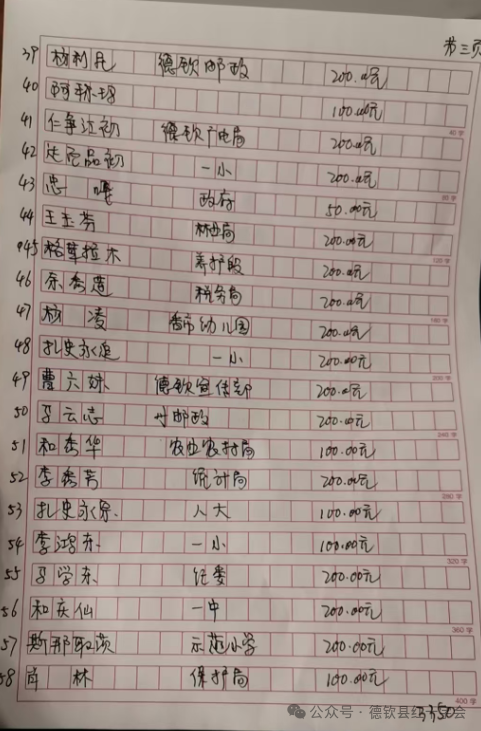 第三页
39 杨利民 德钦邮政 200.00元
40 阿球玛 100.00元
41 仁争达初 德钦广电局 200.00元
42 此色品初 一小 200.00元
43 忠 政府 50.00元
44 王玉芬 林业局 200.00元
45 格茸拉木 养护段 200.00元
46 余秀莲 税务局 200.00元
47 杨凌 香市幼儿园 200.00元
48 扎史永追 一小 200.00元
49 曹六妹 德钦宣传部 200.00元
50 马云志 州邮政 200.00元
51 和秀华 农业农村局 100.00元
52 李秀芳 统计局 200.00元
53 扎史永宗 人大 100.00元
54 李鸿东 一小 100.00元
55 马学东 纪委 200.00元
56 和庆仙 一中 200.00元
57 斯那取顶 示范小学 200.00元
58 林 保护局 100.00元
3350
公众号·德钦县红 会